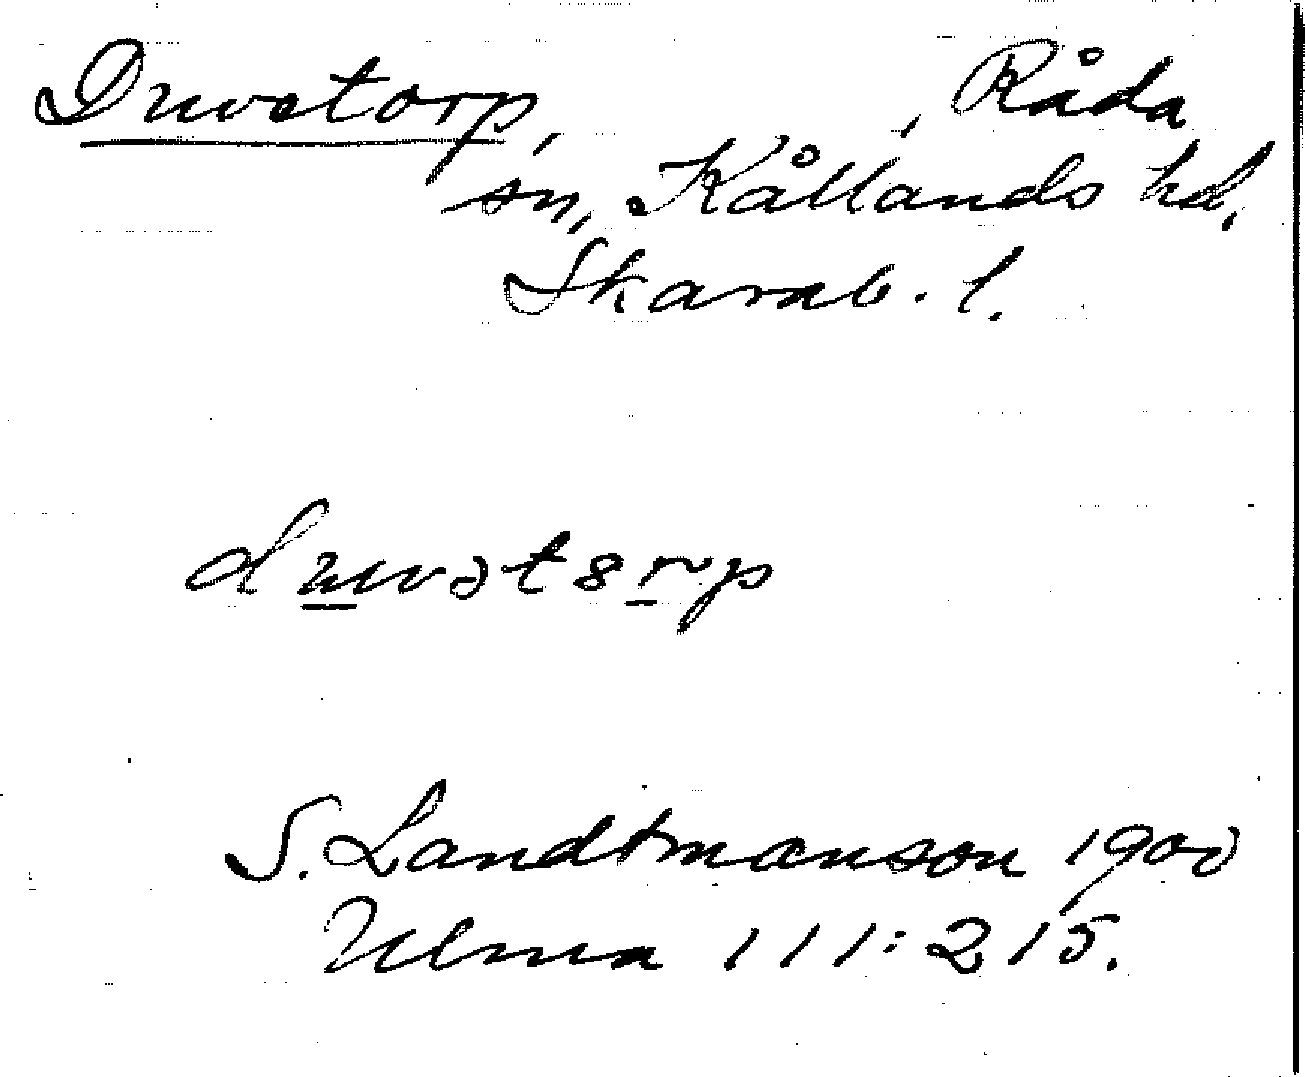 Duvetorp, , Råda
sn, Kållands hd,
Skarab. l.
duvətərp
S. Landtmanson 1900
Ulma 111:215.